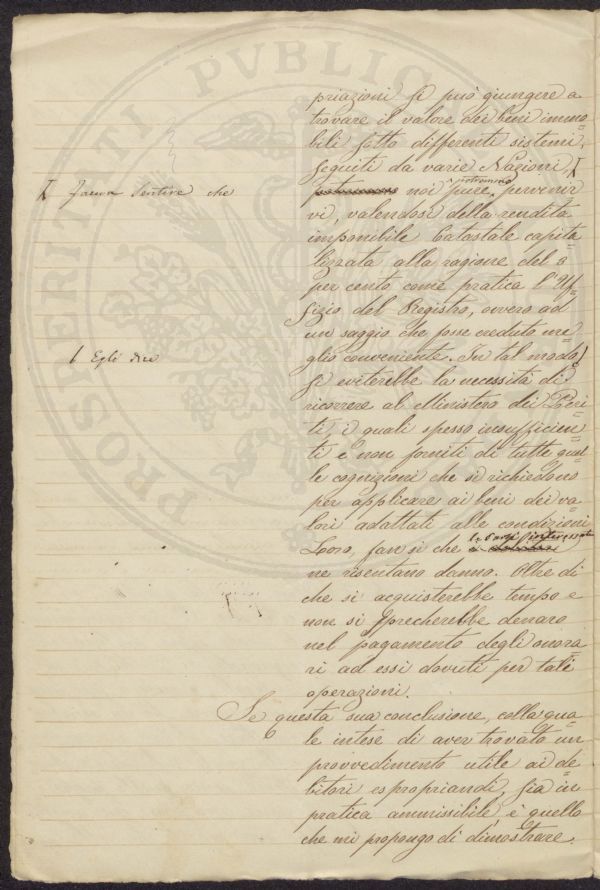 PROSPERITATI PVBLICAE
priazioni si può giungere a
trovare il valore dei beni immo=
bili sotto differenti sistemi,
seguiti da varie Nazioni,
facea sentire che
potranno
noi pure pervenir
vi, valendosi della rendita
imponibile Catastale capita=
lizzata alla ragione del 8
per cento come pratica l'Uf=
fizio del Registro, ovvero ad
un saggio che fosse creduto me=
glio conveniente. In tal modo
Egli dice
si eviterebbe la necessità di
ricorrere al Ministero dei Peri=
ti i quali spesso insufficien=
ti e non forniti di tutte quel
le cognizioni che si richiedono
per applicare ai beni dei va=
lori adattati alle condizioni
Loro, fan sì che le parti interessate
ne risentano danno. Oltre di
che si acquisterebbe tempo e
non si sprecherebbe denaro
nel pagamento degli onora=
ri ad essi dovuti per tali
operazioni.
Se questa sua conclusione, colla qua=
le intese di aver trovato un
provvedimento utile ai de=
bitori espropriandi, sia in
pratica ammissibile è quello
che mi propongo di dimostrare.